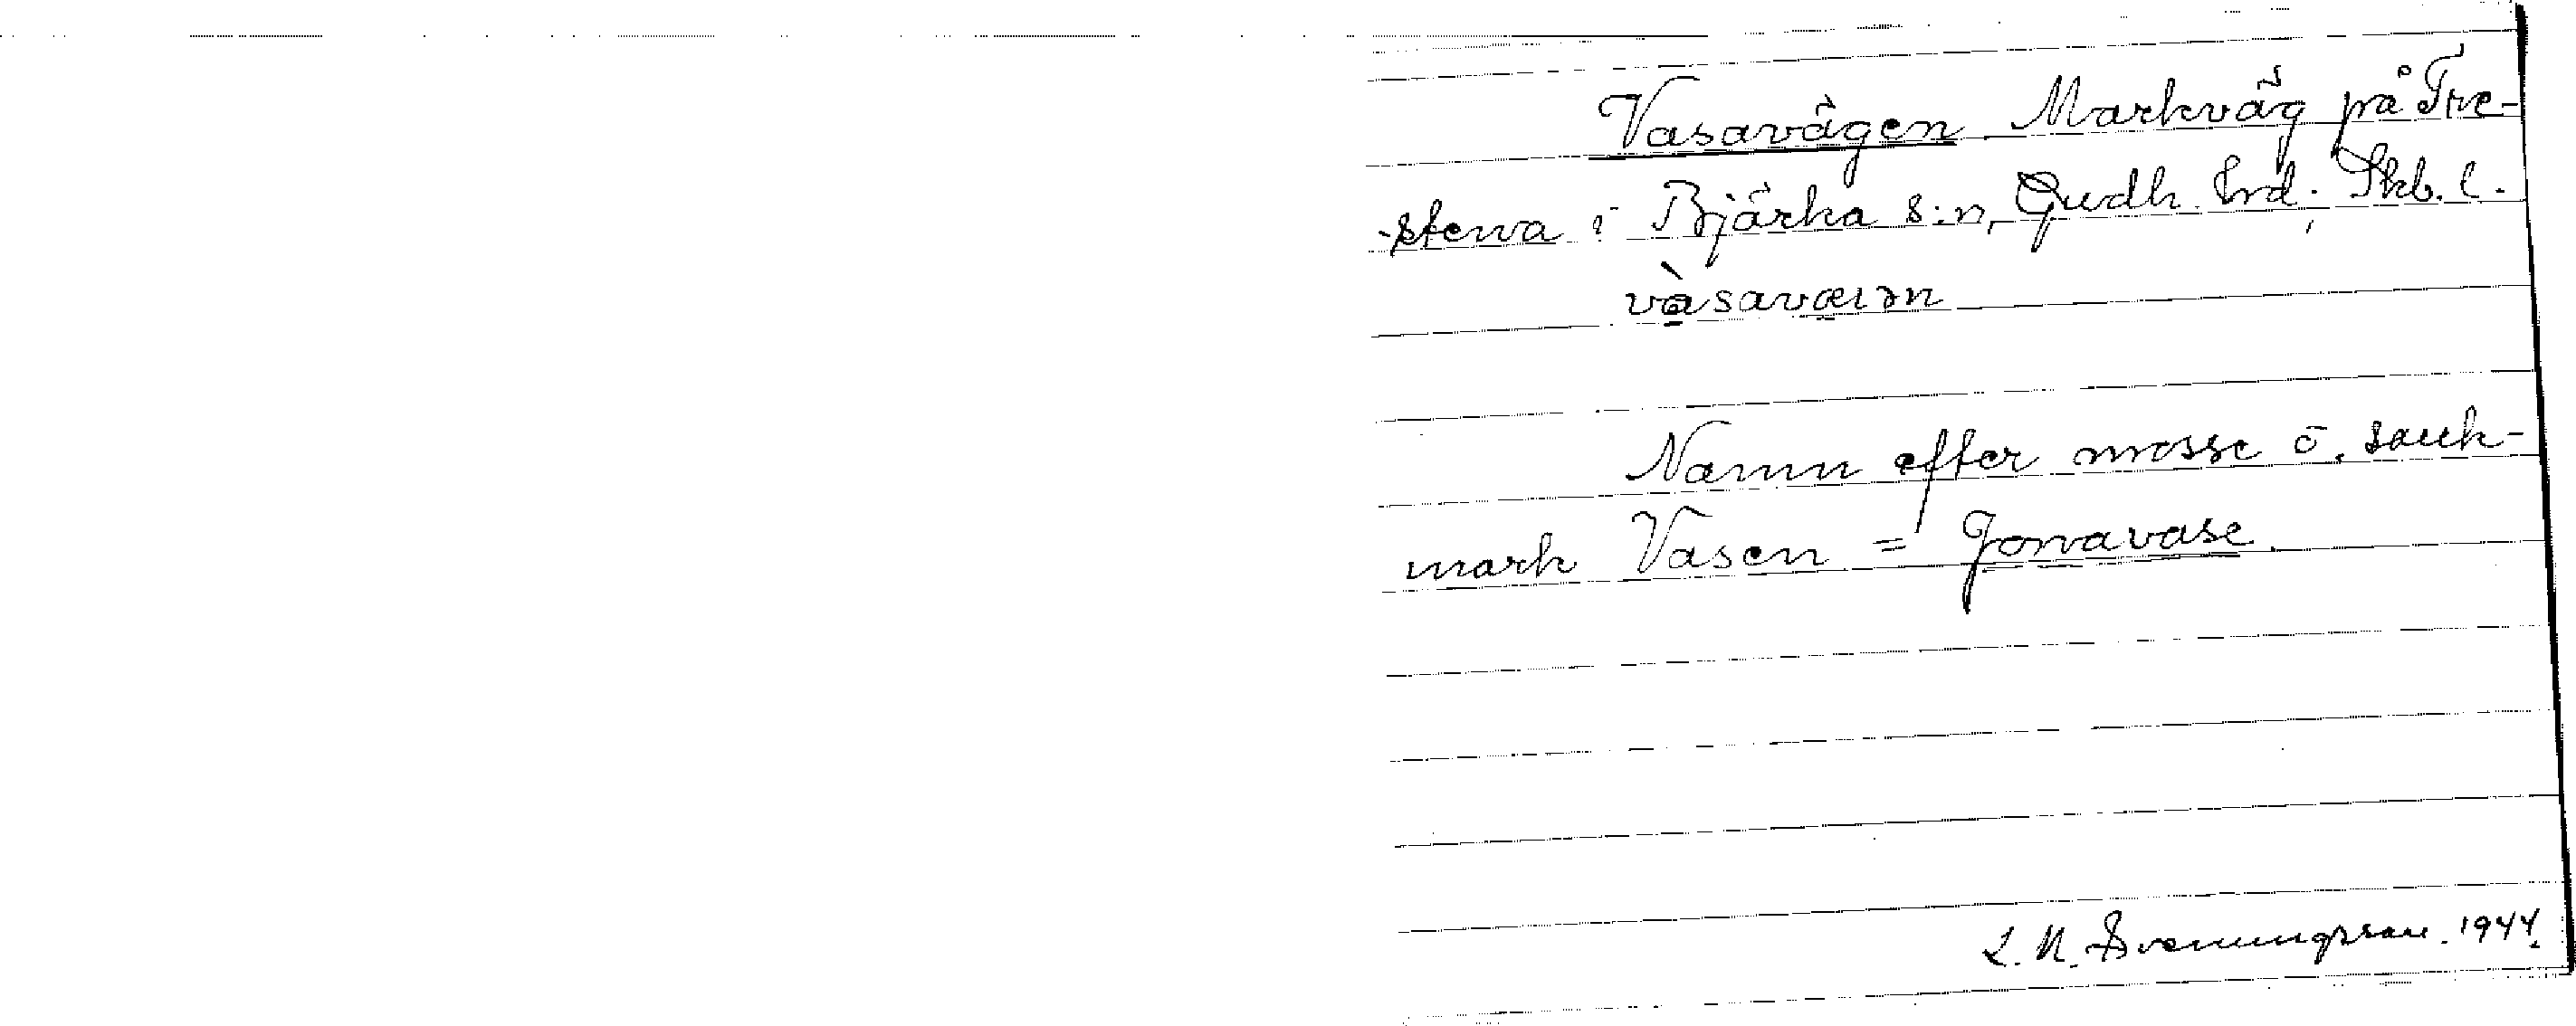 Vasavägen Markväg på Tre-
stena i Bjärka s:n, Gudh. hrd; Skb. l.
vàsaværən
Namn efter mosse o. sank-
mark Vasen = Jonavase.
L. N. Svenungsson. 1944.